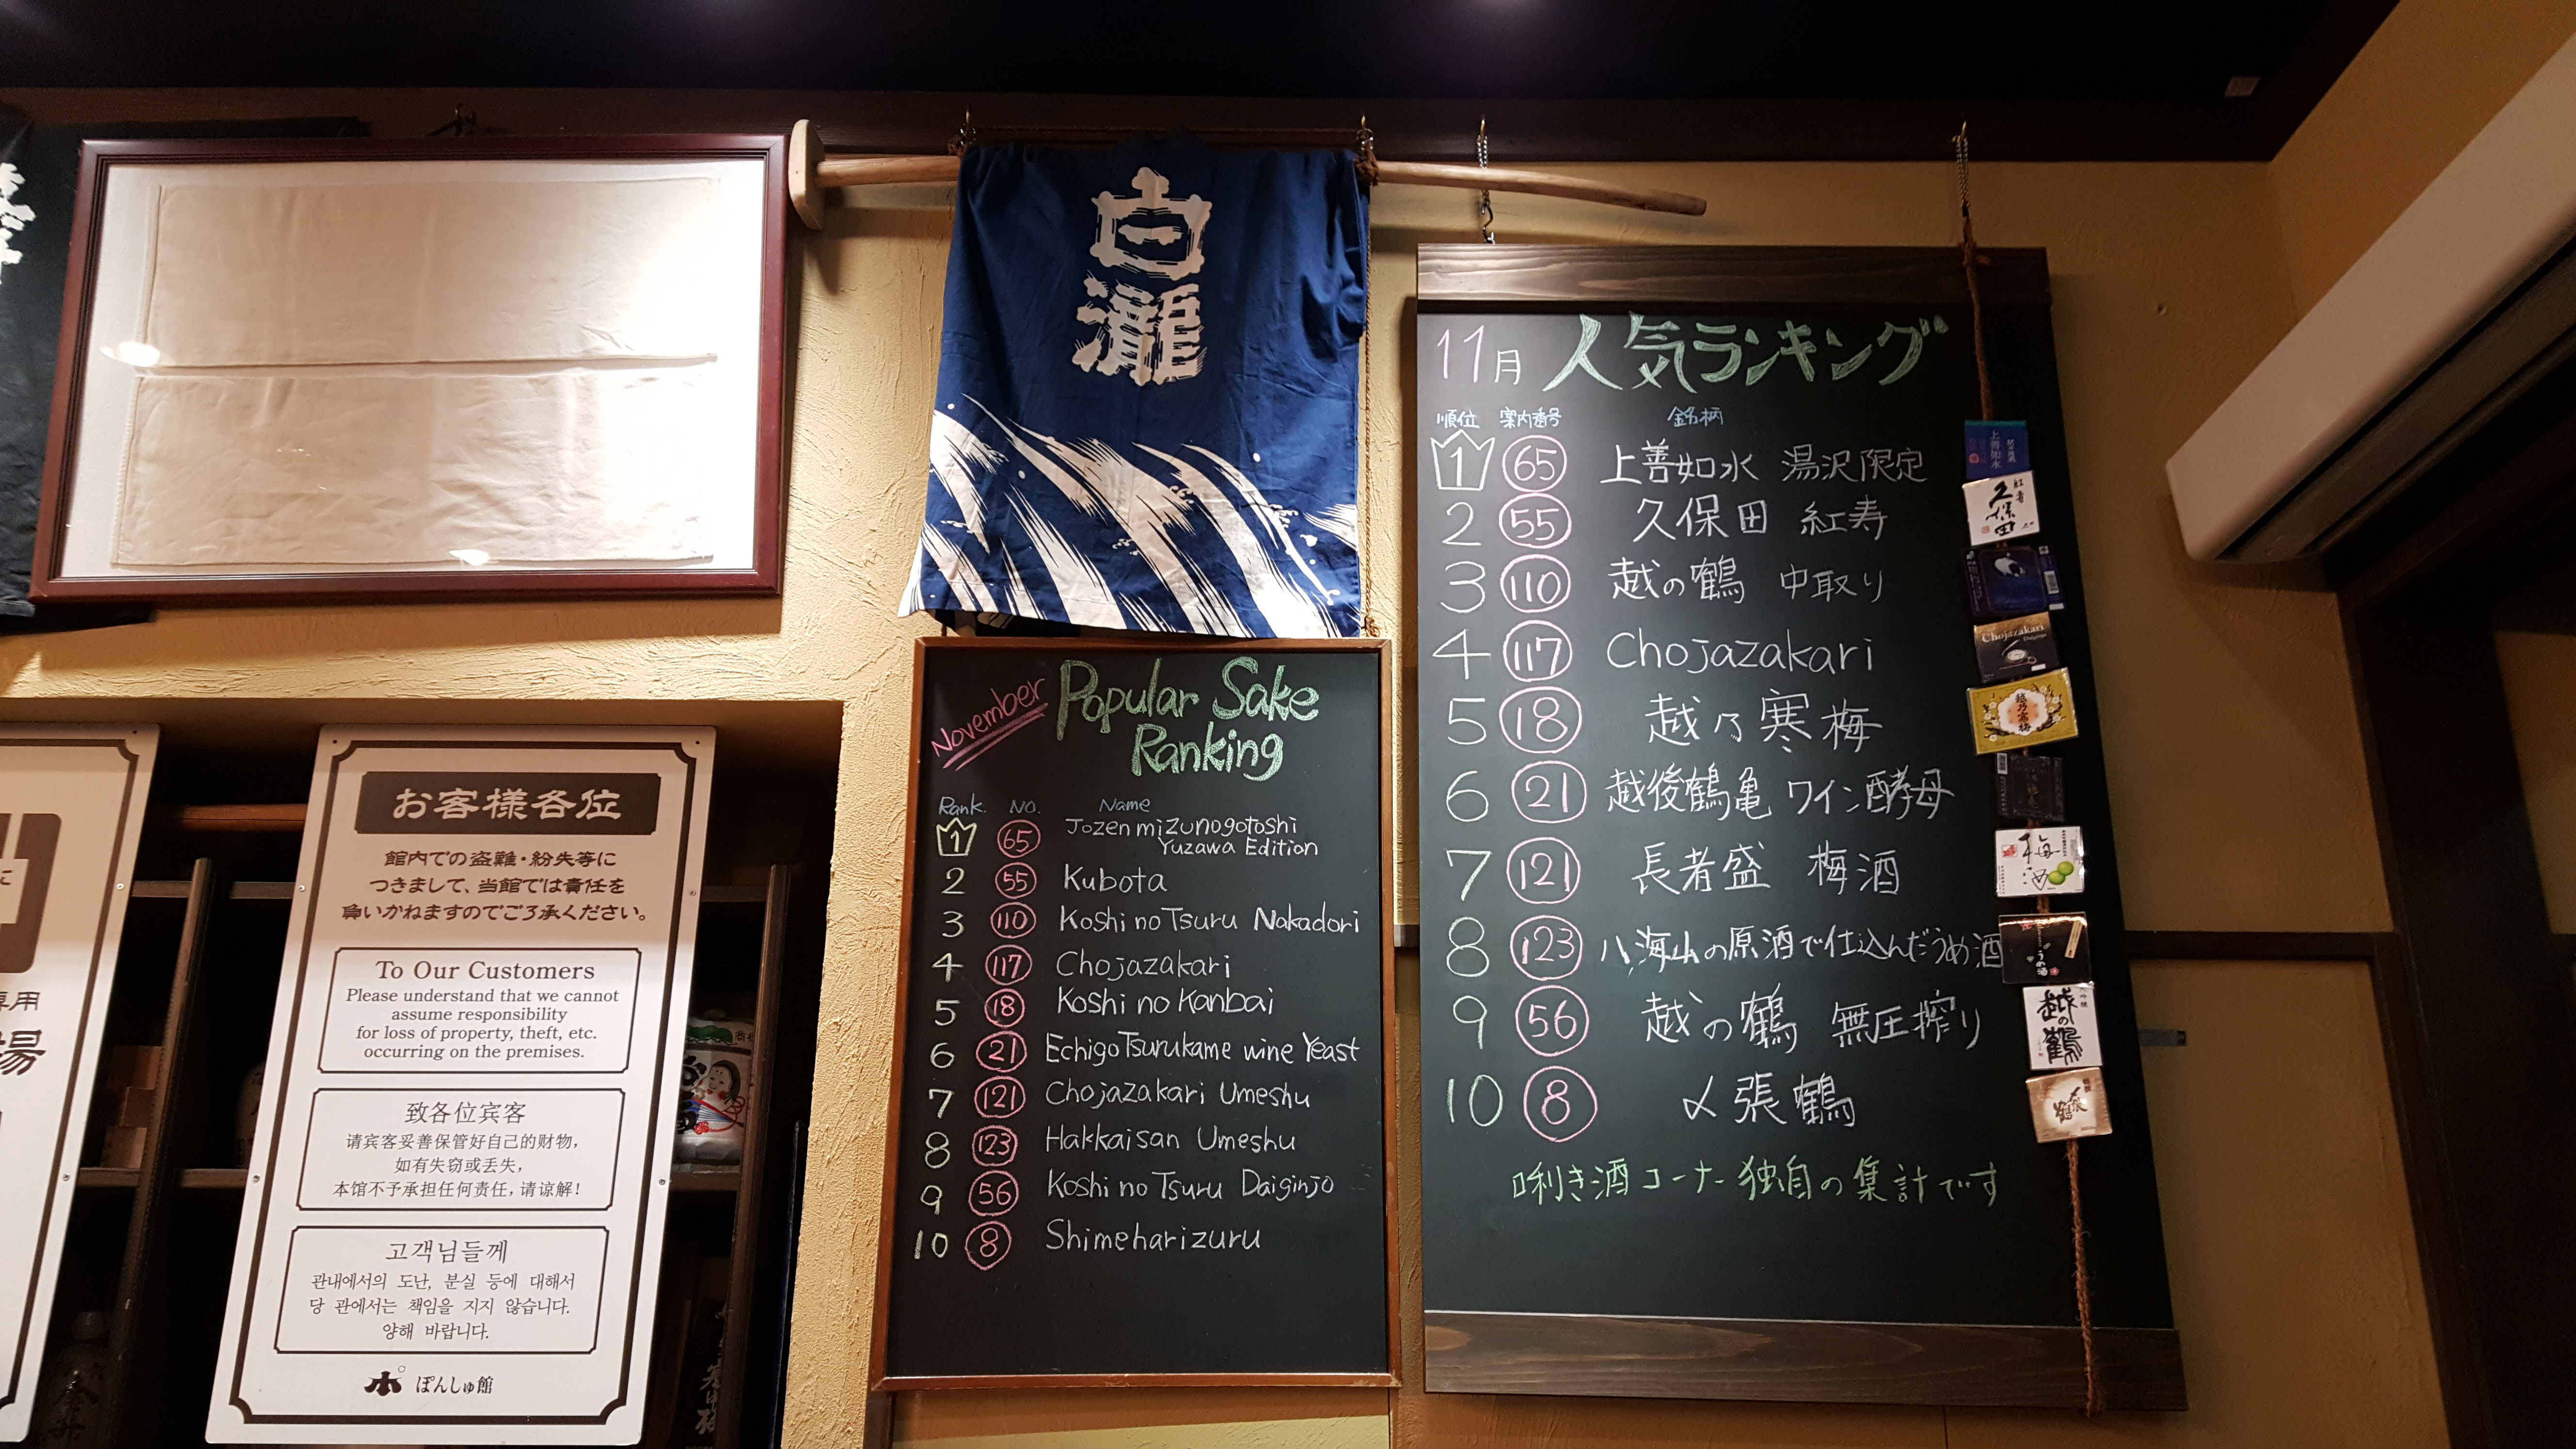 白瀧
お客様各位
館内での盗難・紛失等に
つきまして、当館では責任を
負いかねますのでご了承ください。
To Our Customers
Please understand that we cannot
assume responsibility
for loss of property, theft, etc.
occurring on the premises.
致各位宾客
请宾客妥善保管好自己的财物,
如有失窃或丢失,
本馆不予承担任何责任,请谅解!
고객님들께
관내에서의 도난, 분실 등에 대해서
당 관에서는 책임을 지지 않습니다.
양해 바랍니다.
ぽんしゅ館
November Popular Sake
Ranking
Rank. No. Name
1 65 Jozen mizunogotoshi
Yuzawa Edition
2 55 Kubota
3 110 Koshi no Tsuru Nakadori
4 117 Chojazakari
5 18 Koshi no Kanbai
6 21 Echigo Tsurukame wine Yeast
7 121 Chojazakari Umeshu
8 123 Hakkaisan Umeshu
9 56 Koshi no Tsuru Daiginjo
10 8 Shimeharizuru
11月 人気ランキング
順位 案内番号 銘柄
1 65 上善如水 湯沢限定
2 55 久保田 紅寿
3 110 越の鶴 中取り
4 117 Chojazakari
5 18 越乃寒梅
6 21 越後鶴亀 ワイン酵母
7 121 長者盛 梅酒
8 123 八海山の原酒で仕込んだうめ酒
9 56 越の鶴 無圧搾り
10 8 〆張鶴
唎き酒コーナー独自の集計です
上善如水
久保田
紅寿
Chojazakari
Daiginjo
越乃寒梅
梅酒
うめ酒
越の鶴
〆張鶴
専用
場